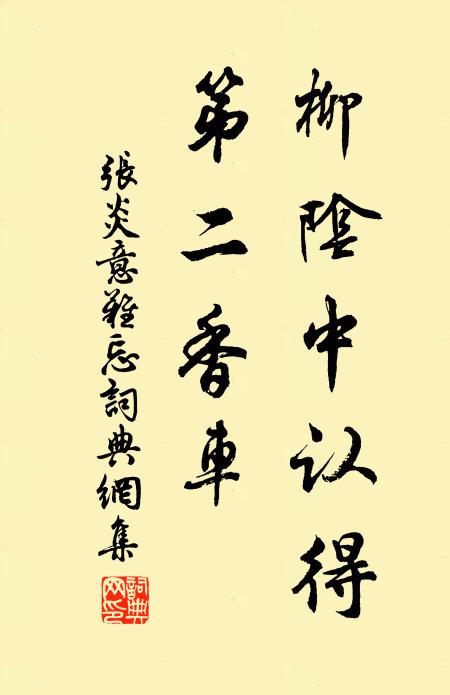 柳陰中认得
第二香車
張炎意難忘詞典網集
詞典网印